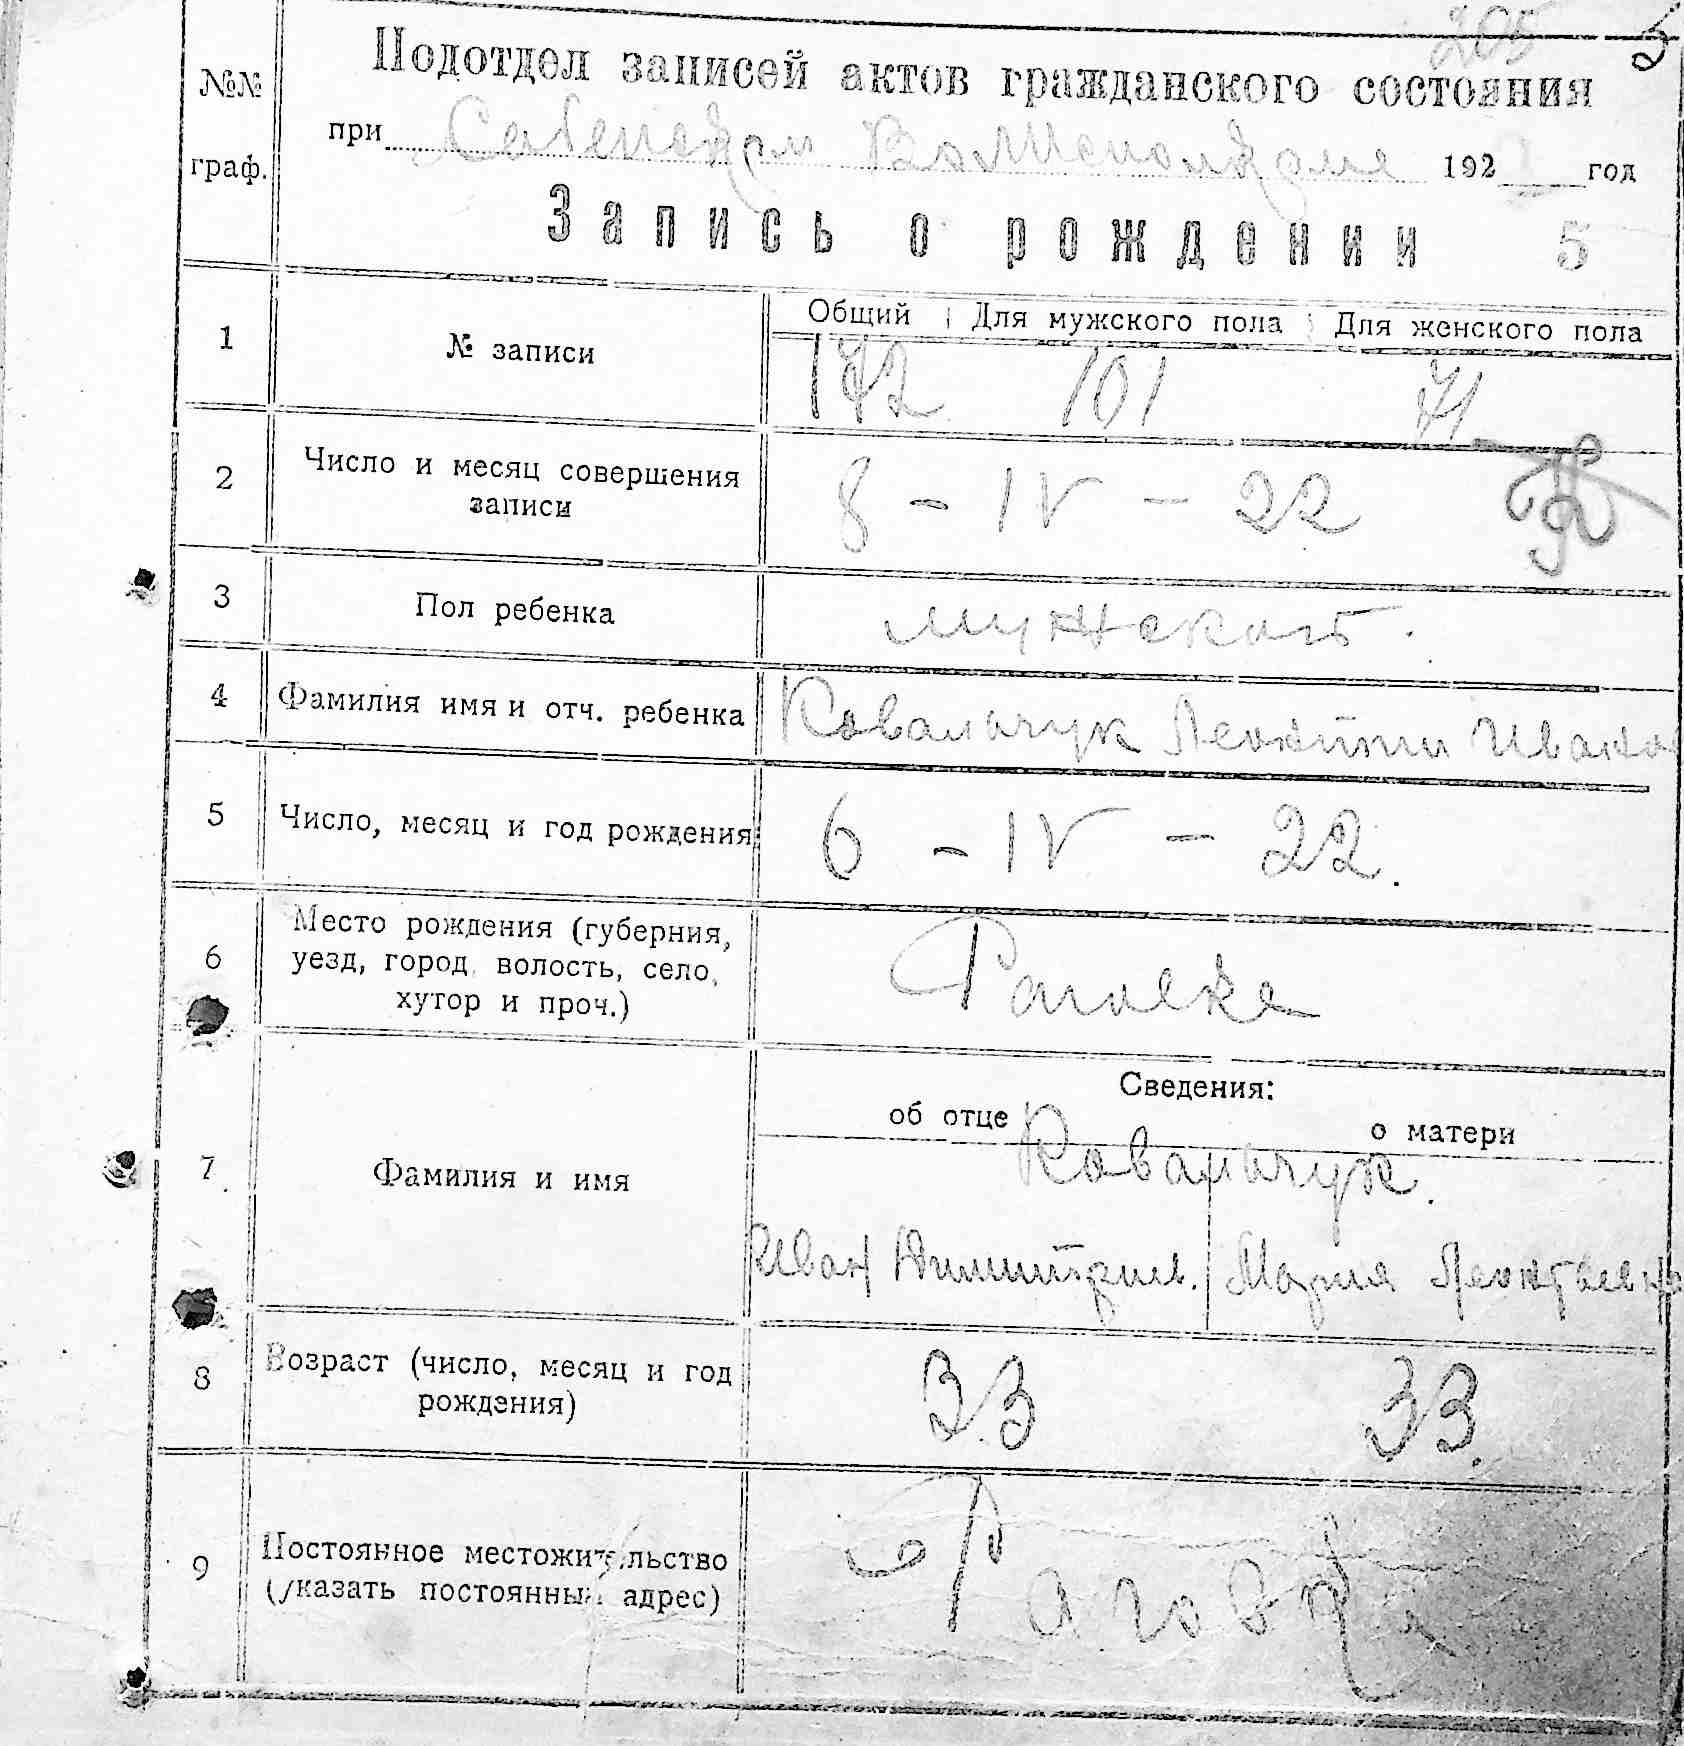 205 5
Подотдел записей актов гражданского состояния
№№
граф.
при Волисполкоме 1922 год
Запись о рождении 5
1 № записи
Общий Для мужского пола Для женского пола
172 101 71
2 Число и месяц совершения
записи
8 - IV - 22
3 Пол ребенка мужской.
4 Фамилия имя и отч. ребенка Ковальчук Леонтии Ивано
5 Число, месяц и год рождения 6 - IV - 22.
6 Место рождения (губерния,
уезд, город, волость, село,
хутор и проч.)
Сведения:
об отце о матери
7 Фамилия и имя
Ковальчук.
Иван Димитриев. Мария Леонтьевна
8 Возраст (число, месяц и год
рождения)
33 33.
9 Постоянное местожительство
(указать постоянный адрес)